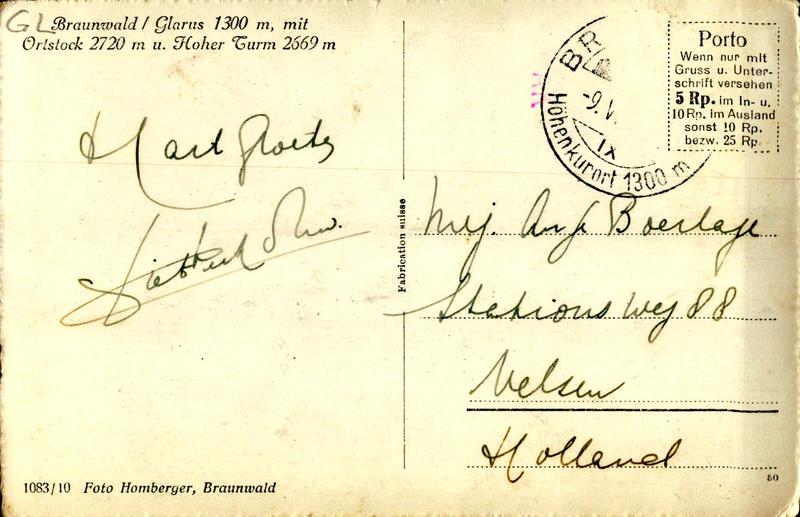 GL
Braunwald / Glarus 1300 m, mit
Ortstock 2720 m u. Hoher Turm 2669 m
BR
-9.V.
IX
Höhenkurort 1300 m
Porto
Wenn nur mit
Gruss u. Unter-
schrift versehen
5 Rp. im In- u.
10 Rp. im Ausland
sonst 10 Rp.
bezw. 25 Rp.
Hart Groets
Fabrication suisse
Mej. Boerlage
Stationsweg 88
Velsen
Holland
1083/10 Foto Homberger, Braunwald
50